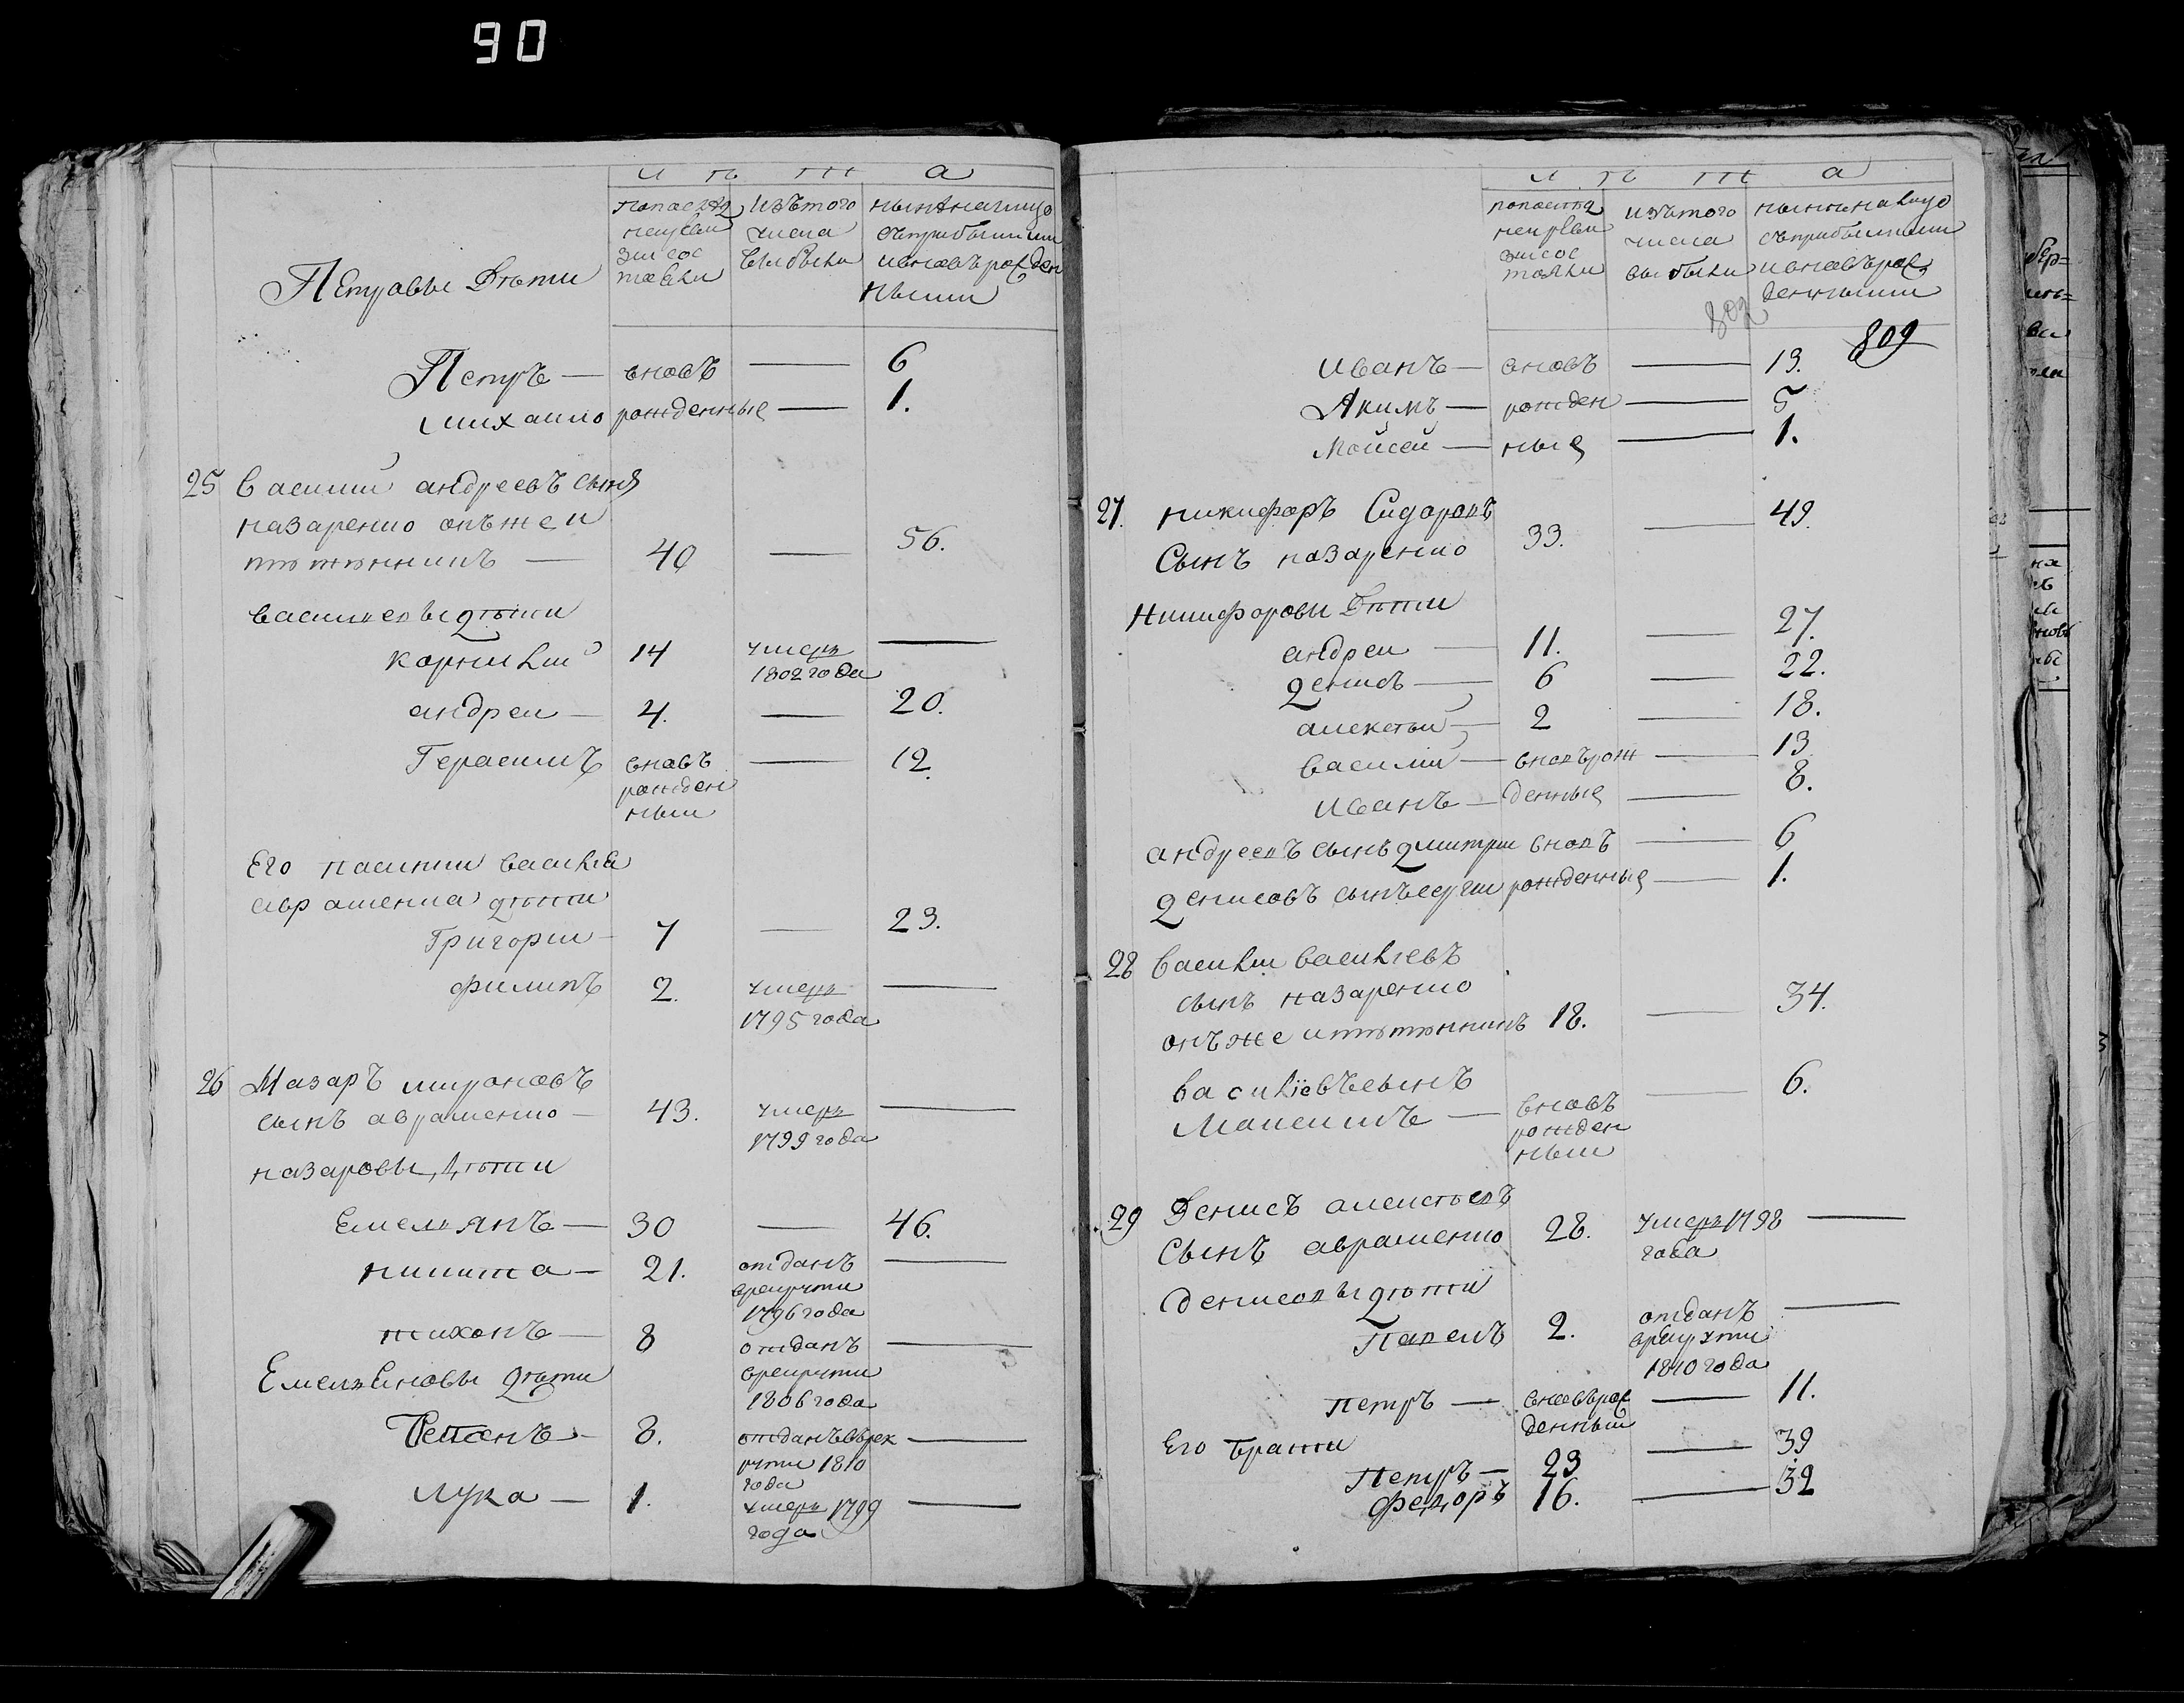 90
л ѣ т а
Петровы Дѣти
попослѣд
неиреви
зиисос
тояли
Изътого
числа
выбыли
нынѣналицо
съприбылыми
ивновърожден
ными
Петръ — вновь — 6
михаило рожденные — 1.
25 Василий андреевъ сынъ
назаренко онъже и
плютюнникъ — 40 — 56.
васильевы дѣти
корнилий 14 умеръ —
1802 года
андреи — 4. — 20.
Герасимъ вновъ — 12.
рожден
ныи
Его пасинки василия
авраменка дѣти
Григории — 7 — 23.
филипъ 2. умеръ —
1795 года
26 Назаръ мироновъ
сынъ авраменко — 43. умеръ —
1799 года
назаровы дѣти
Емельянъ — 30 — 46.
никита — 21. отданъ —
врекруты
1796 года
тихонъ — 8 отданъ —
врекруты
1806 года
Емельяновы дѣти
Степанъ — 8. отданъ върек —
руты 1810
года
лука — 1. умеръ 1799 —
года
л ѣ т а
попослѣд
неиреви
зиисос
тояли
изътого
числа
выбыли
нынѣналицо
съприбылыми
ивновърож
денными
802
809
иванъ — вновъ — 13.
Акимъ — рожден — 5
Моисеи — ные — 1.
27. никифоръ Сидоровъ
Сынъ назаренко 33. — 49.
Никифоровы Дѣти
андреи — 11. — 27.
денисъ — 6 — 22.
алексѣй — 2 — 18.
василий — вновърож — 13
иванъ — денные — 8.
андреевъ сынъ дмитри вновъ — 6
денисовъ сынъ сергеи рожденные — 1.
28 василии васильевъ
сынъ назаренко
онъже и плютюнникъ 18. — 34.
василіевъ сынъ — 6.
Максимъ — вновъ
рожден
ныи
29 Денисъ алексѣевъ
Сынъ авраменко 28. умеръ 1798 —
года
денисовы дѣти
Павелъ 2. отданъ —
врекруты
1810 года
петръ — вновърож — 11.
денный
Его братя
Петръ — 23 — 39
федоръ 16. — 32